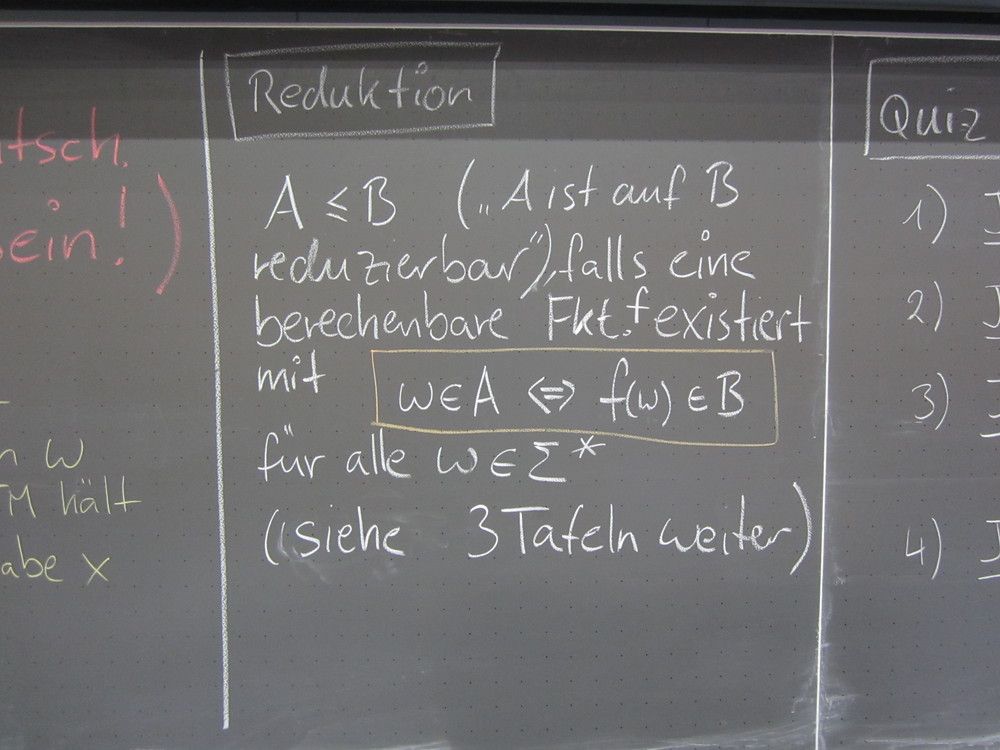 tsch.
ein!)
n w
TM hält
abe x
Reduktion
A ≤ B („A ist auf B
reduzierbar"), falls eine
berechenbare Fkt. f existiert
mit w∈A ⇔ f(w) ∈ B
für alle w∈Σ*
(siehe 3 Tafeln weiter)
Quiz
1)
2)
3)
4)